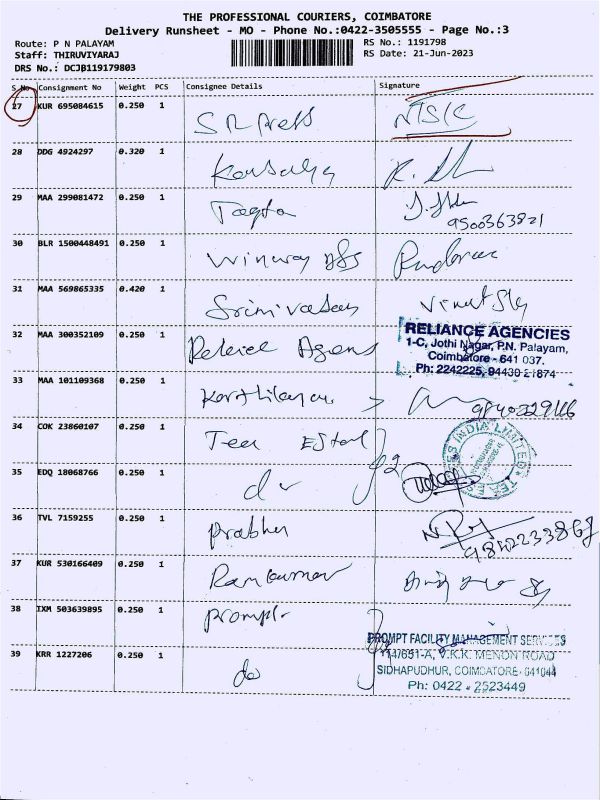 THE PROFESSIONAL COURIERS, COIMBATORE
Delivery Runsheet - MO - Phone No.:0422-3505555 - Page No.:3
Route: P N PALAYAM
RS No.: 1191798
Staff: THIRUVIYARAJ
RS Date: 21-Jun-2023
DRS No.: DCJB119179803
S.No Consignment No Weight PCS Consignee Details Signature
27 KUR 695084615 0.250 1 S R Press
28 DDG 4924297 0.320 1 Kousalya
29 MAA 299081472 0.250 1
9500363821
30 BLR 1500448491 0.250 1
31 MAA 569865335 0.420 1 Srinivasan
RELIANCE AGENCIES
1-C, Jothi Nagar, P.N. Palayam,
32 MAA 300352109 0.250 1
Coimbatore - 641 037.
Ph: 2242225, 94430 21874
33 MAA 101109368 0.250 1
34 COK 23860107 0.250 1 Tea Estate
INDIA LIMITED
35 EDQ 18068766 0.250 1 do
36 TVL 7159255 0.250 1 Prabhu
37 KUR 530166409 0.250 1 Ramkumar
38 IXM 503639895 0.250 1 Prompt
PROMPT FACILITY MANAGEMENT SERVICES
147/651-A, V.K.K. MENON ROAD
39 KRR 1227206 0.250 1 do
SIDHAPUDHUR, COIMBATORE - 641044
Ph: 0422 - 2523449